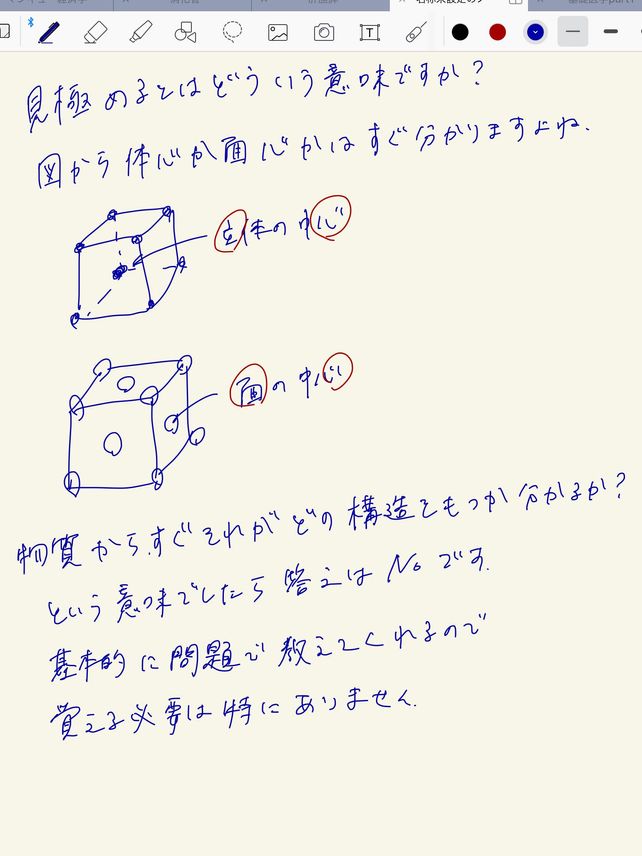 名称未設定のノ
見極めるとはどういう意味ですか?
図から体心か面心かはすぐ分かりますよね.
立体の中心
面の中心
物質からすぐそれがどの構造をもつか分かるか?
という意味でしたら答えはNoです.
基本的に問題で教えてくれるので
覚える必要は特にありません.